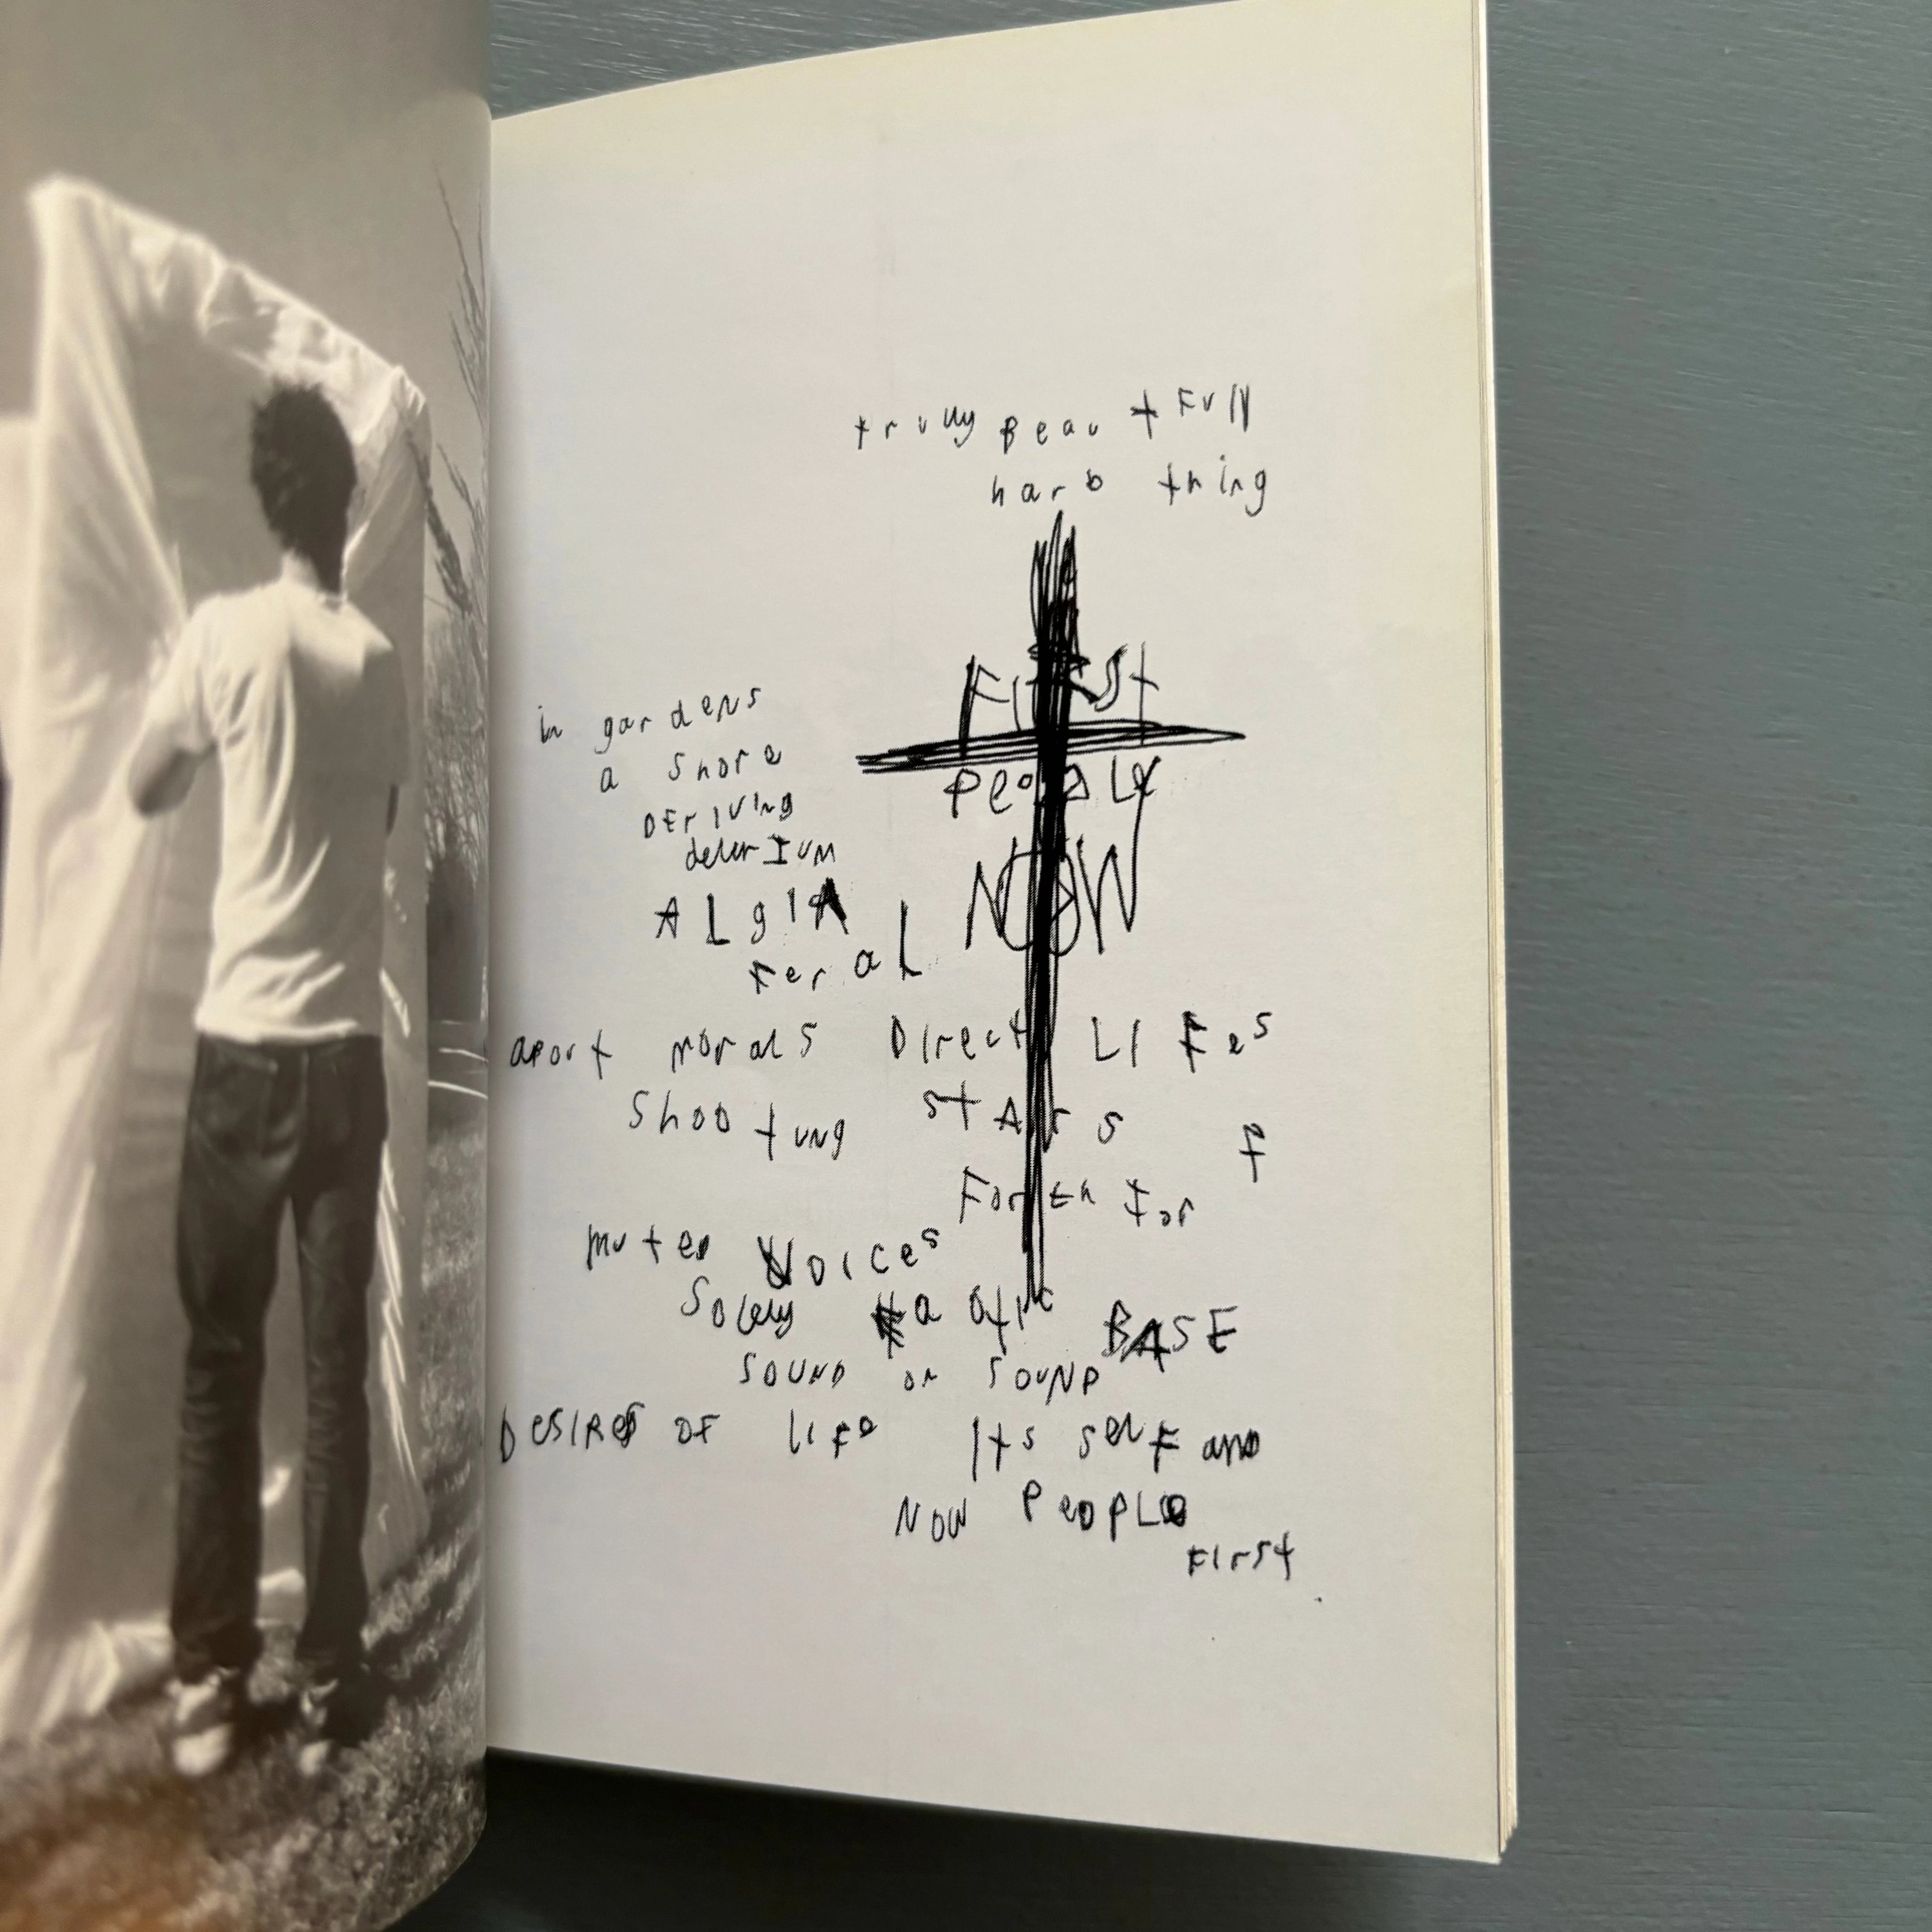 trully Beautfull
hard thing
First
in gardens
a shore
PeoPLe
DEriVing
delirIum
ALgIA
NOW
feraL
apart morals Direct LiFes
Shootung stArs F
Forth for
muted Voices
Solely a
BASE
SOUND on SOUND
DESIRes OF LiFe Its selF and
NOW PeopLe
First